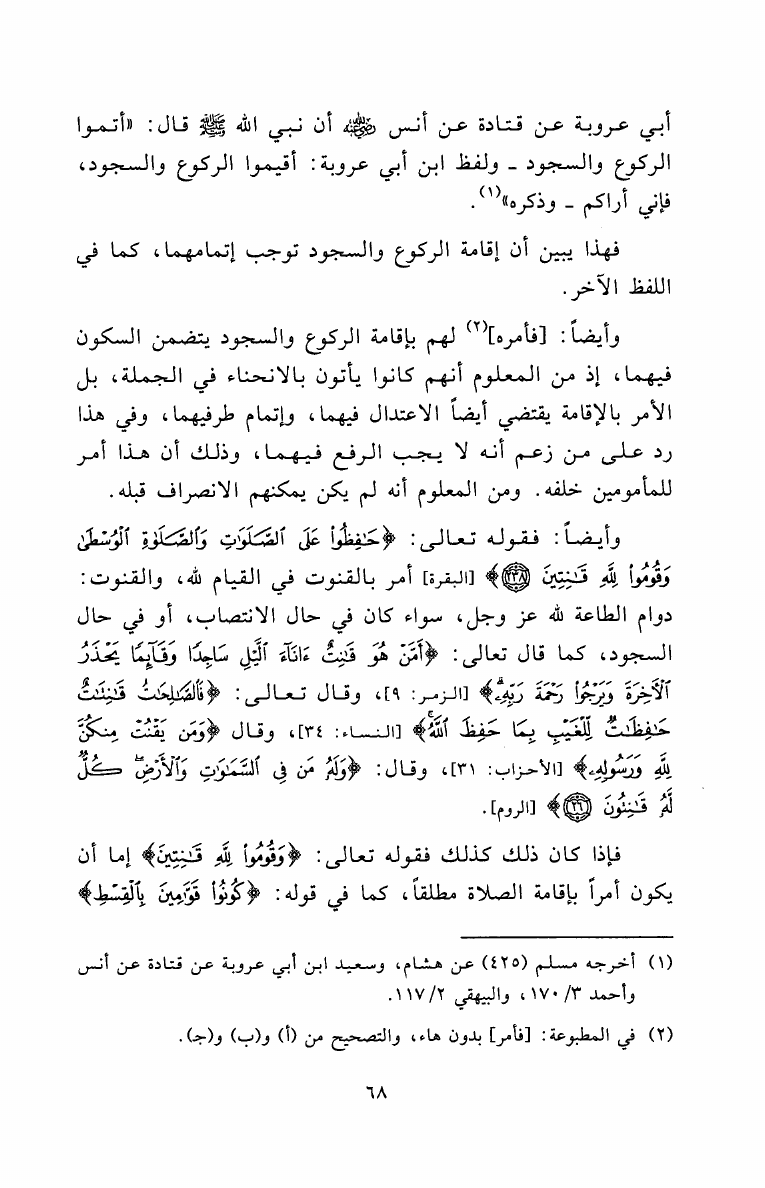 أبي عروبة عن قتادة عن أنس رضي الله عنه أن نبي الله ﷺ قال: «أتموا
الركوع والسجود - ولفظ ابن أبي عروبة: أقيموا الركوع والسجود،
فإني أراكم - وذكره»(١).
فهذا يبين أن إقامة الركوع والسجود توجب إتمامهما، كما في
اللفظ الآخر.
وأيضاً: [فأمره](٢) لهم بإقامة الركوع والسجود يتضمن السكون
فيهما، إذ من المعلوم أنهم كانوا يأتون بالانحناء في الجملة، بل
الأمر بالإقامة يقتضي أيضاً الاعتدال فيهما، وإتمام طرفيهما، وفي هذا
رد على من زعم أنه لا يجب الرفع فيهما، وذلك أن هذا أمر
للمأمومين خلفه. ومن المعلوم أنه لم يكن يمكنهم الانصراف قبله.
وأيضاً: فقوله تعالى: ﴿حَٰفِظُوا۟ عَلَى ٱلصَّلَوَٰتِ وَٱلصَّلَوٰةِ ٱلْوُسْطَىٰ
وَقُومُوا۟ لِلَّهِ قَٰنِتِينَ ٢٣٨﴾ [البقرة] أمر بالقنوت في القيام لله، والقنوت:
دوام الطاعة لله عز وجل، سواء كان في حال الانتصاب، أو في حال
السجود، كما قال تعالى: ﴿أَمَّنْ هُوَ قَٰنِتٌ ءَانَآءَ ٱلَّيْلِ سَاجِدًا وَقَآئِمًا يَحْذَرُ
ٱلْءَاخِرَةَ وَيَرْجُوا۟ رَحْمَةَ رَبِّهِۦ﴾ [الزمر: ٩]، وقال تعالى: ﴿فَٱلصَّٰلِحَٰتُ قَٰنِتَٰتٌ
حَٰفِظَٰتٌ لِّلْغَيْبِ بِمَا حَفِظَ ٱللَّهُ﴾ [النساء: ٣٤]، وقال ﴿وَمَن يَقْنُتْ مِنكُنَّ
لِلَّهِ وَرَسُولِهِۦ﴾ [الأحزاب: ٣١]، وقال: ﴿وَلَهُۥ مَن فِى ٱلسَّمَٰوَٰتِ وَٱلْأَرْضِ كُلٌّ
لَّهُۥ قَٰنِتُونَ ٢٦﴾ [الروم].
فإذا كان ذلك كذلك فقوله تعالى: ﴿وَقُومُوا۟ لِلَّهِ قَٰنِتِينَ﴾ إما أن
يكون أمراً بإقامة الصلاة مطلقاً، كما في قوله: ﴿كُونُوا۟ قَوَّٰمِينَ بِٱلْقِسْطِ﴾
(١) أخرجه مسلم (٤٢٥) عن هشام، وسعيد ابن أبي عروبة عن قتادة عن أنس
وأحمد ٣/ ١٧٠، والبيهقي ٢/ ١١٧.
(٢) في المطبوعة: [فأمر] بدون هاء، والتصحيح من (أ) و(ب) و(جـ).
٦٨